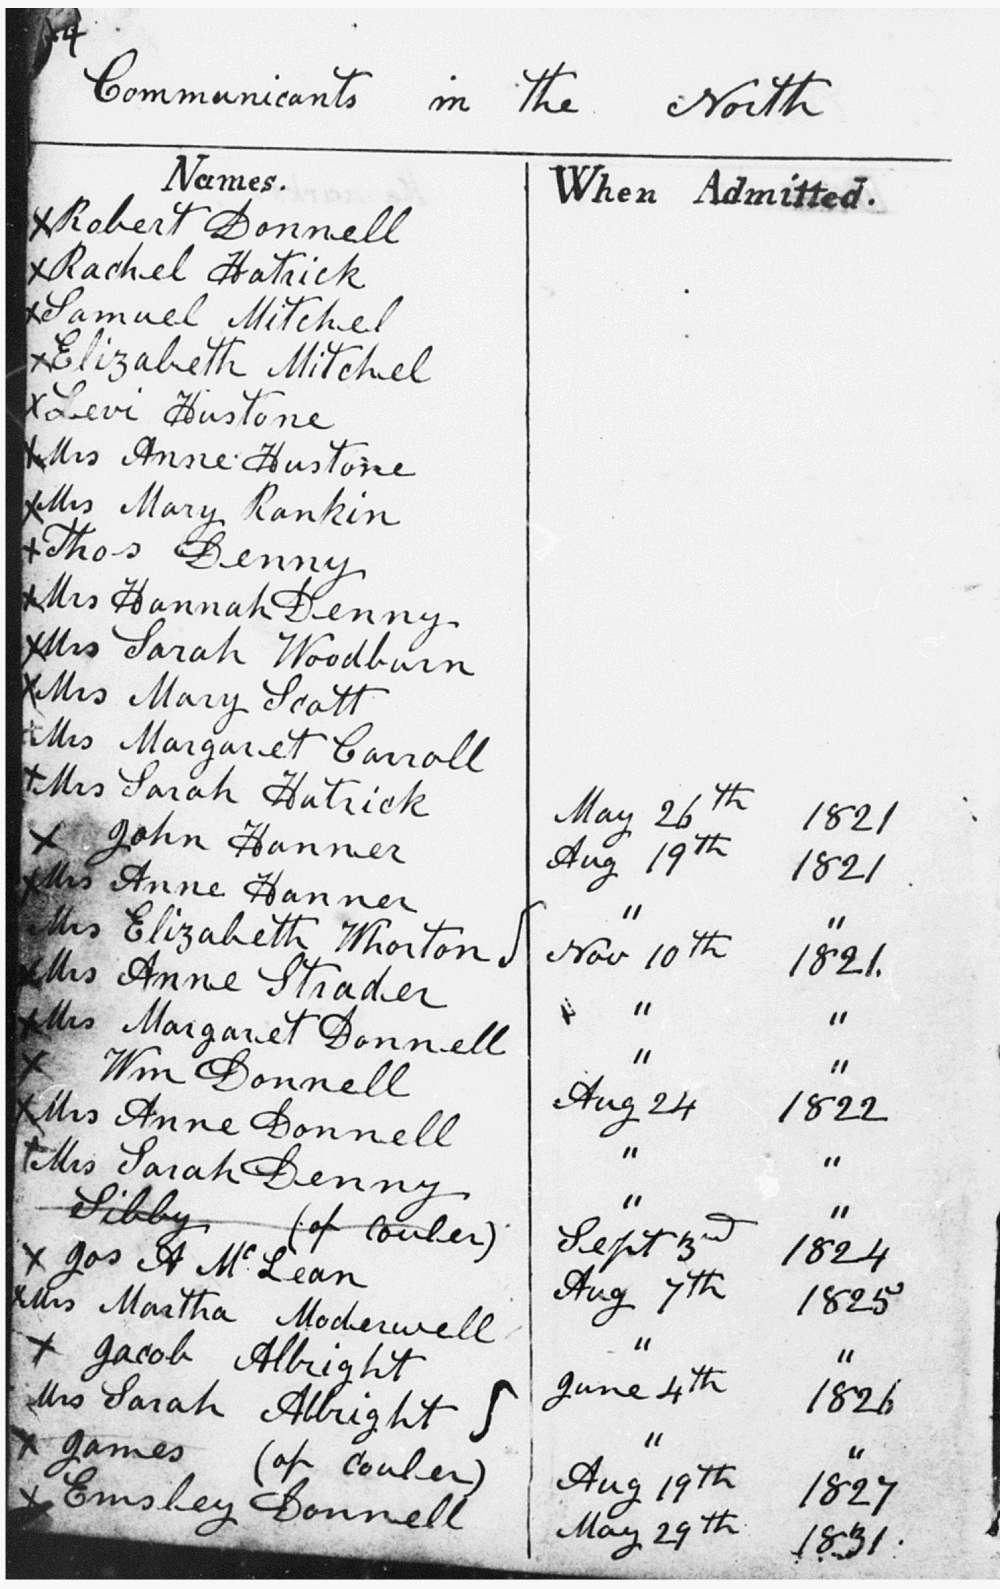 94
Communicants in the North
Names. When Admitted.
x Robert Donnell
x Rachel Hatrick
x Samuel Mitchel
x Elizabeth Mitchel
x Levi Hustone
x Mrs Anne Hustone
x Mrs Mary Rankin
x Thos Denny
x Mrs Hannah Denny
x Mrs Sarah Woodburn
x Mrs Mary Scott
x Mrs Margaret Carroll
x Mrs Sarah Hatrick May 26th 1821
x John Hanner Aug 19th 1821
x Mrs Anne Hanner " "
Mrs Elizabeth Whorton Nov 10th 1821.
x Mrs Anne Strader " "
x Mrs Margaret Donnell " "
x Wm Donnell Aug 24 1822
x Mrs Anne Donnell " "
x Mrs Sarah Denny " "
Sibby (of couler) Sept 3rd 1824
x Jos A McLean Aug 7th 1825
x Mrs Martha Moderwell " "
x Jacob Albright June 4th 1826
Mrs Sarah Albright " "
x James (of couler) Aug 19th 1827
x Emsley Donnell May 29th 1831.